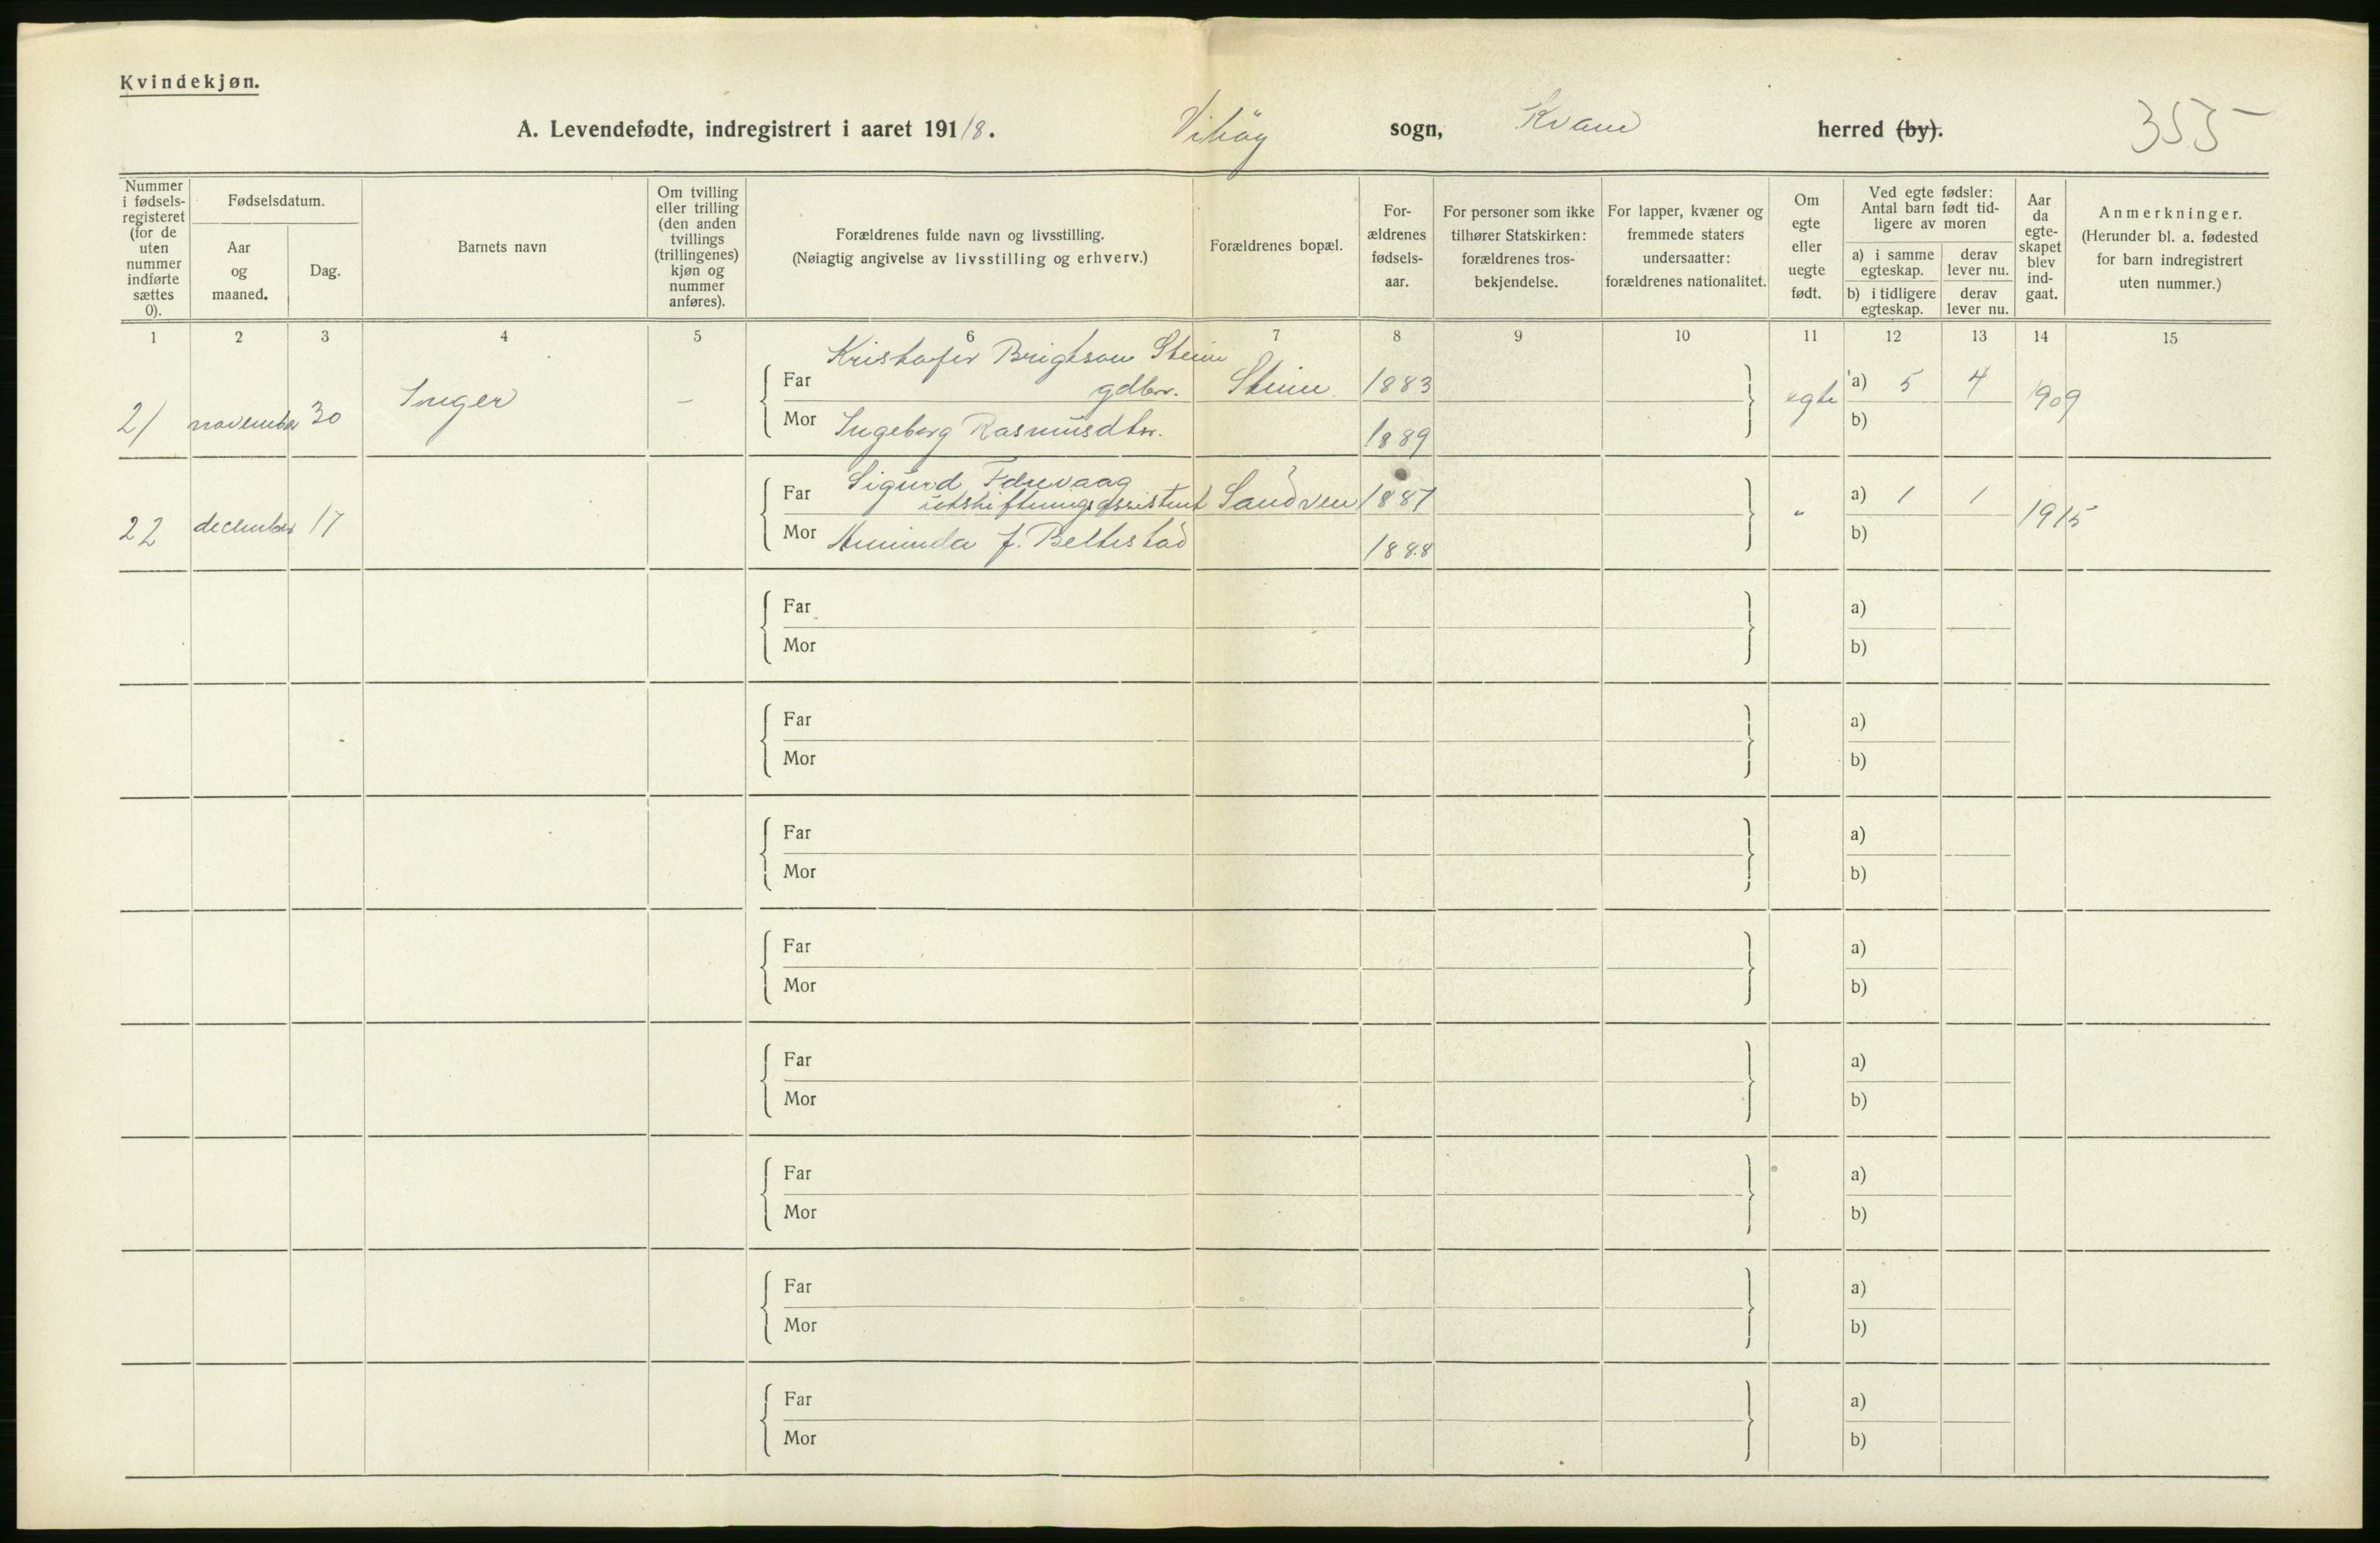 Kvindekjøn.
A. Levendefødte, indregistrert i aaret 1918. Vikøy sogn, Kvam herred (by). 355
Nummer i fødsels-registeret (for de uten nummer indførte sættes 0).
Fødselsdatum.
Aar og maaned.
Dag.
Barnets navn
Om tvilling eller trilling (den anden tvillings (trillingenes) kjøn og nummer anføres).
Forældrenes fulde navn og livsstilling.
(Nøiagtig angivelse av livsstilling og erhverv.)
Forældrenes bopæl.
For-ældrenes fødsels-aar.
For personer som ikke tilhører Statskirken: forældrenes tros-bekjendelse.
For lapper, kvæner og fremmede staters undersaatter: forældrenes nationalitet.
Om egte eller uegte født.
Ved egte fødsler: Antal barn født tid-ligere av moren
a) i samme egteskap.
derav lever nu.
b) i tidligere egteskap.
derav lever nu.
Aar da egte-skapet blev ind-gaat.
Anmerkninger.
(Herunder bl. a. fødested for barn indregistrert uten nummer.)
1 2 3 4 5 6 7 8 9 10 11 12 13 14 15
Kristofer Brigtson Stein
21 november 30 Inger — Far gdbr. Stein 1883 egte a) 5 4 1909
Mor Ingeborg Rasmusdtr. 1889 b)
Sigurd
22 december 17 Far utskiftningsassistent Sandven 1887 " a) 1 1 1915
Mor J. Beltestad 1888 b)
Far a)
Mor b)
Far a)
Mor b)
Far a)
Mor b)
Far a)
Mor b)
Far a)
Mor b)
Far a)
Mor b)
Far a)
Mor b)
Far a)
Mor b)